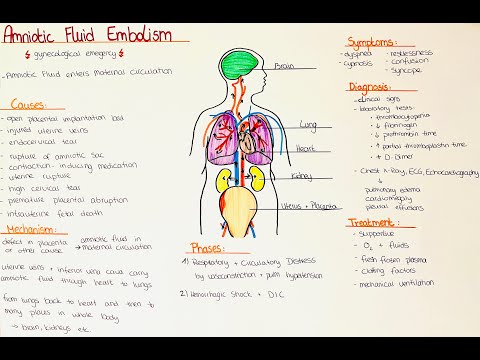 Amniotic Fluid Embolism
gynecological emergency
- Amniotic Fluid enters Maternal Circulation
Causes:
- open placental implantation bed
- injured uterine veins
- endocervical tears
- rupture of amniotic sac
- contraction-inducing medication
- uterine rupture
- high cervical tear
- premature placental abruption
- intrauterine fetal death
Mechanism:
defect in placenta or other cause → amniotic fluid in maternal circulation
uterine veins + inferior vena cava carry
amniotic fluid through heart to lungs
from lungs back to heart and then to
many places in whole body
→ brain, kidneys etc.
Brain
Lung
Heart
Kidney
Uterus + Placenta
Phases:
1) Respiratory + Circulatory Distress
by vasoconstriction + pulm. hypertension
2) Hemorrhagic Shock + DIC
Symptoms:
- dyspnea - restlessness
- cyanosis - confusion
- syncope
Diagnosis:
- clinical signs
- laboratory tests:
• thrombocytopenia
• ↓ fibrinogen
• ↓ prothrombin time
• ↑ partial thromboplastin time
• ↑ D-Dimer
- Chest X-Ray, ECG, Echocardiography
↳
pulmonary edema
cardiomegaly
pleural effusions
Treatment:
- supportive
- O₂ + fluids
- fresh frozen plasma
- clotting factors
- mechanical ventilation